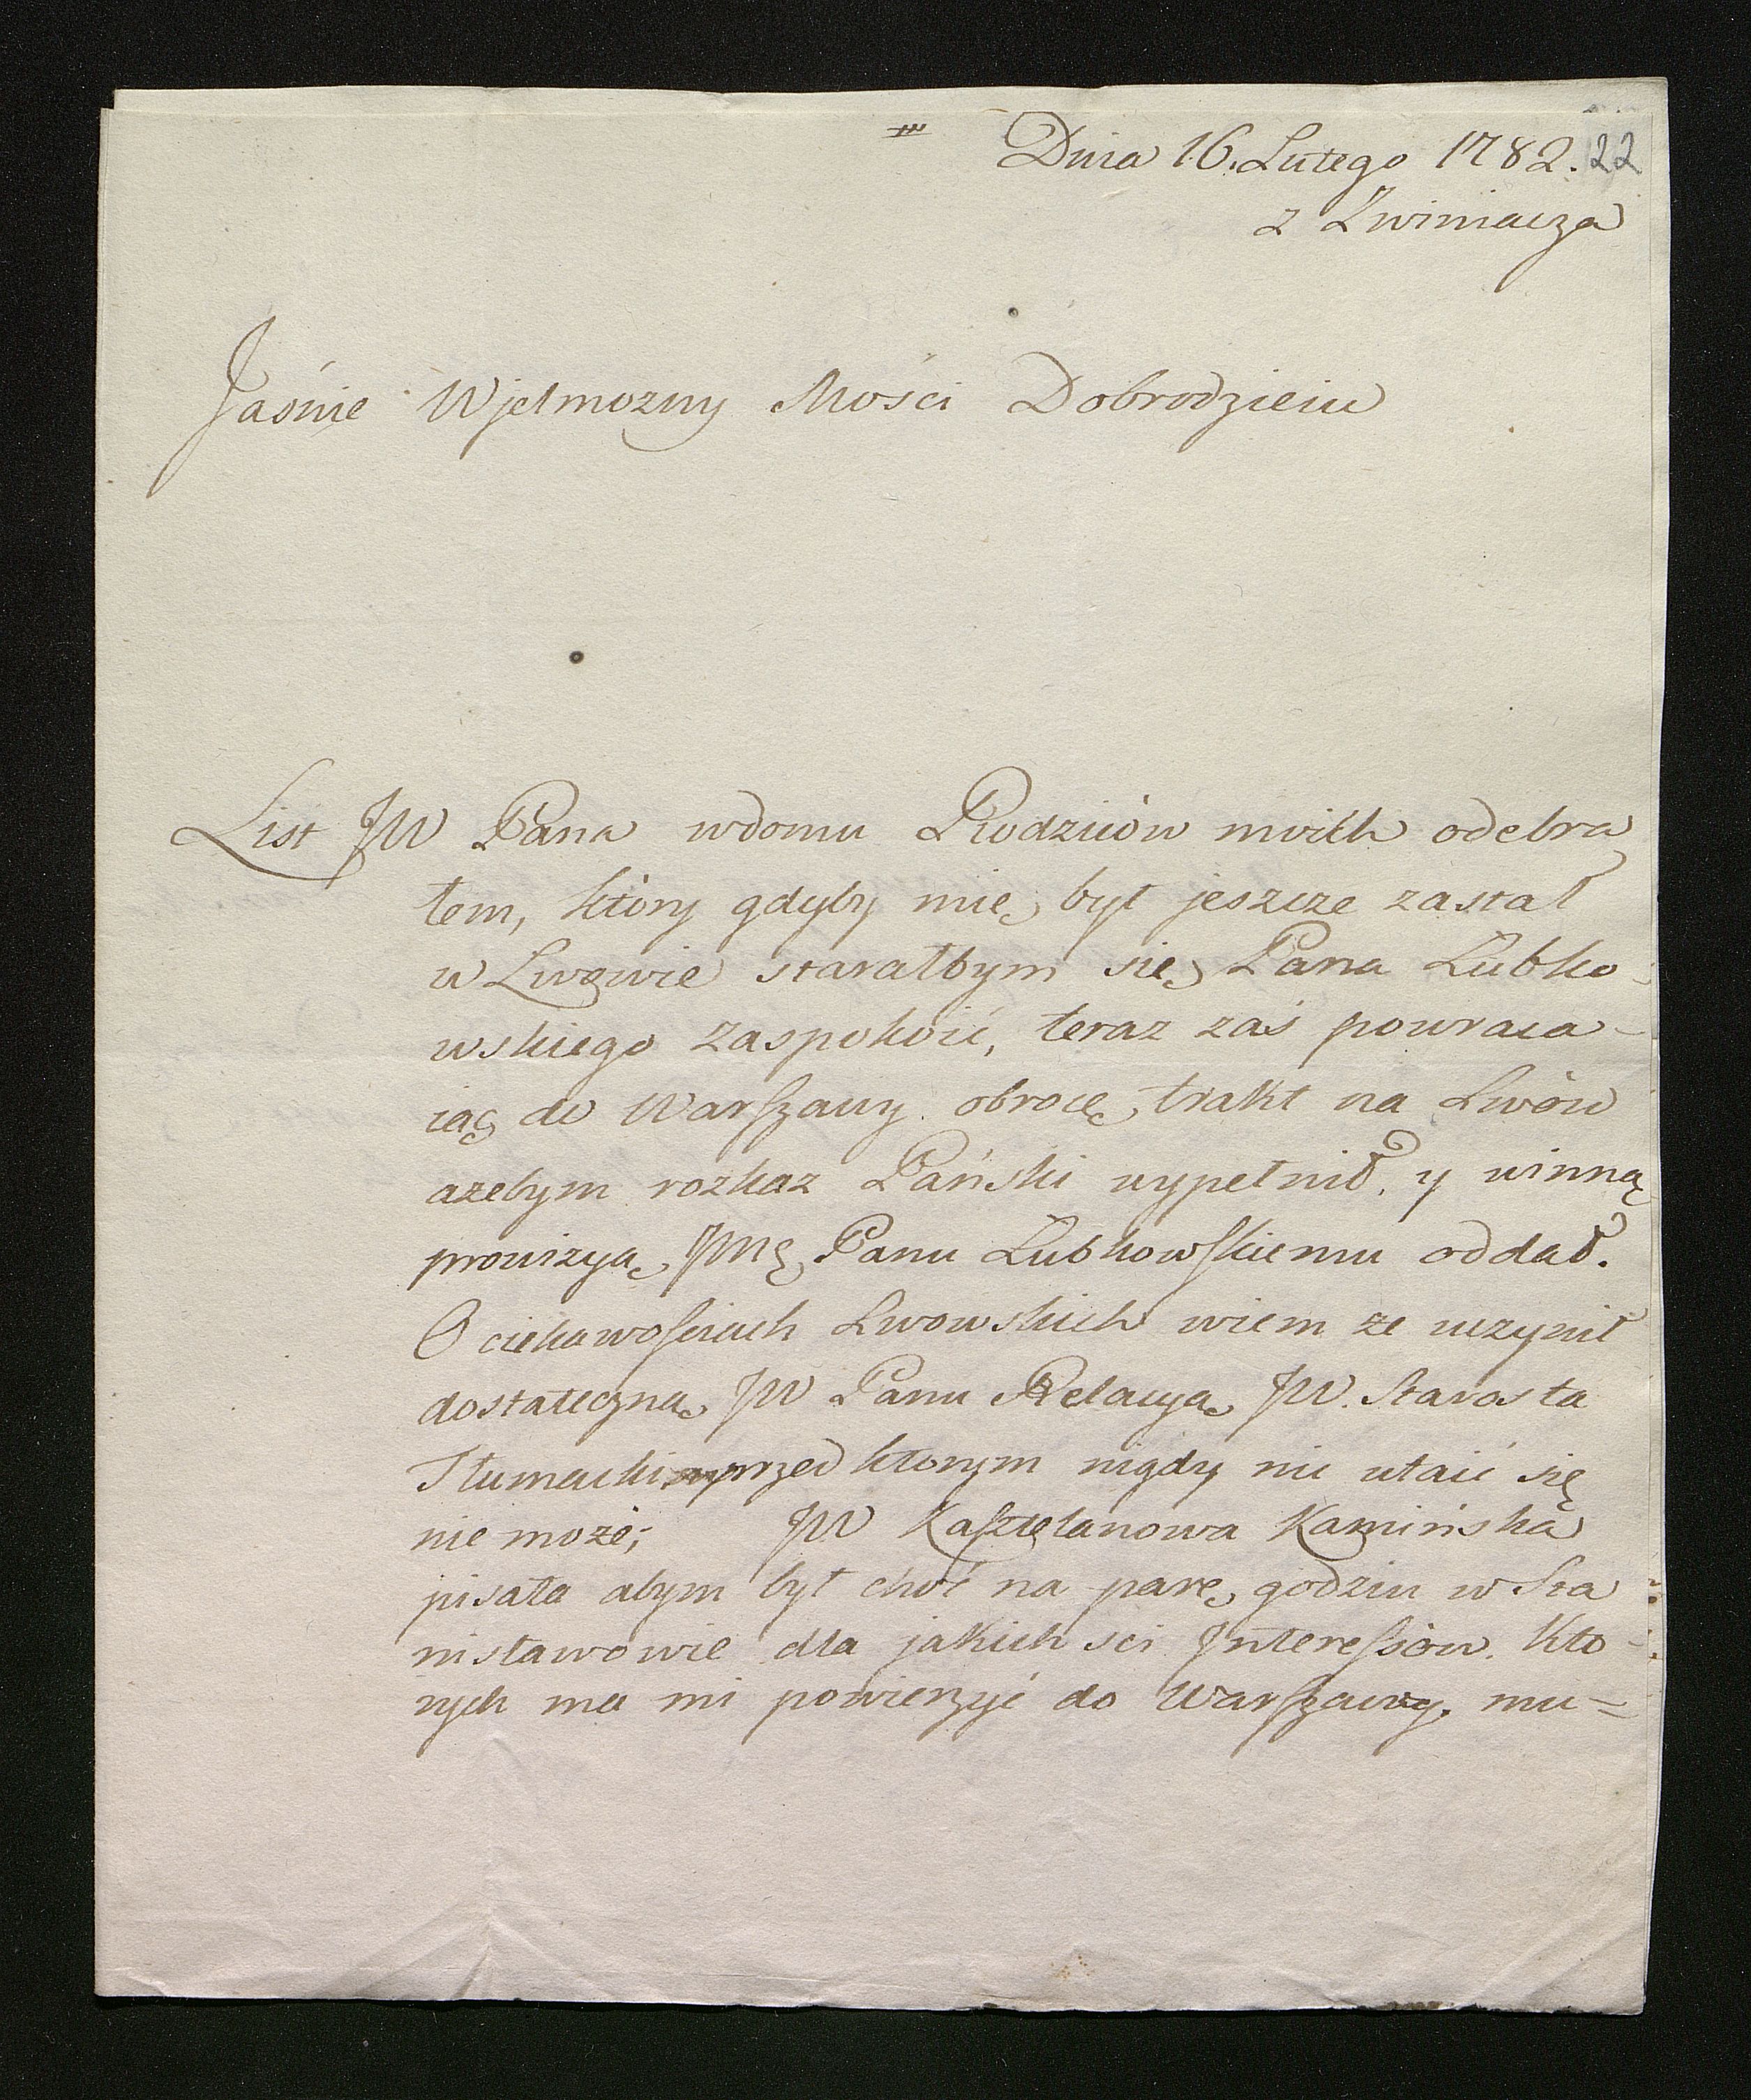 Dnia 16. Lutego 1782. 22
z Zwiniacza
Jaśnie Wjelmozny Mości Dobrodzieiu
List JW Pana wdomu Rodziców moich odebra
łem, który gdyby mię był jeszcze zastał
w Lwowie starałbym się Pana Łubko-
wskiego zaspokoić, teraz zaś powraca-
iąc do Warszawy obrocę trakt na Lwów
azebym rozkaz Pański wypełnił, y winną
prowizyą Panu Łubkowskiemu oddał.
O ciekawościach Lwowskich wiem ze uczynił
dostateczną JW Panu Relacyą JW. Starosta
Tłumacki przed ktorym nigdy nic utaić się
nie może; JW Kasztelanowa Kamińska
pisała abym był choć na parę godzin w Sta
nisławowie dla jakichsci Interessow. kto-
rych ma mi powierzyć do Warszawy. mu=